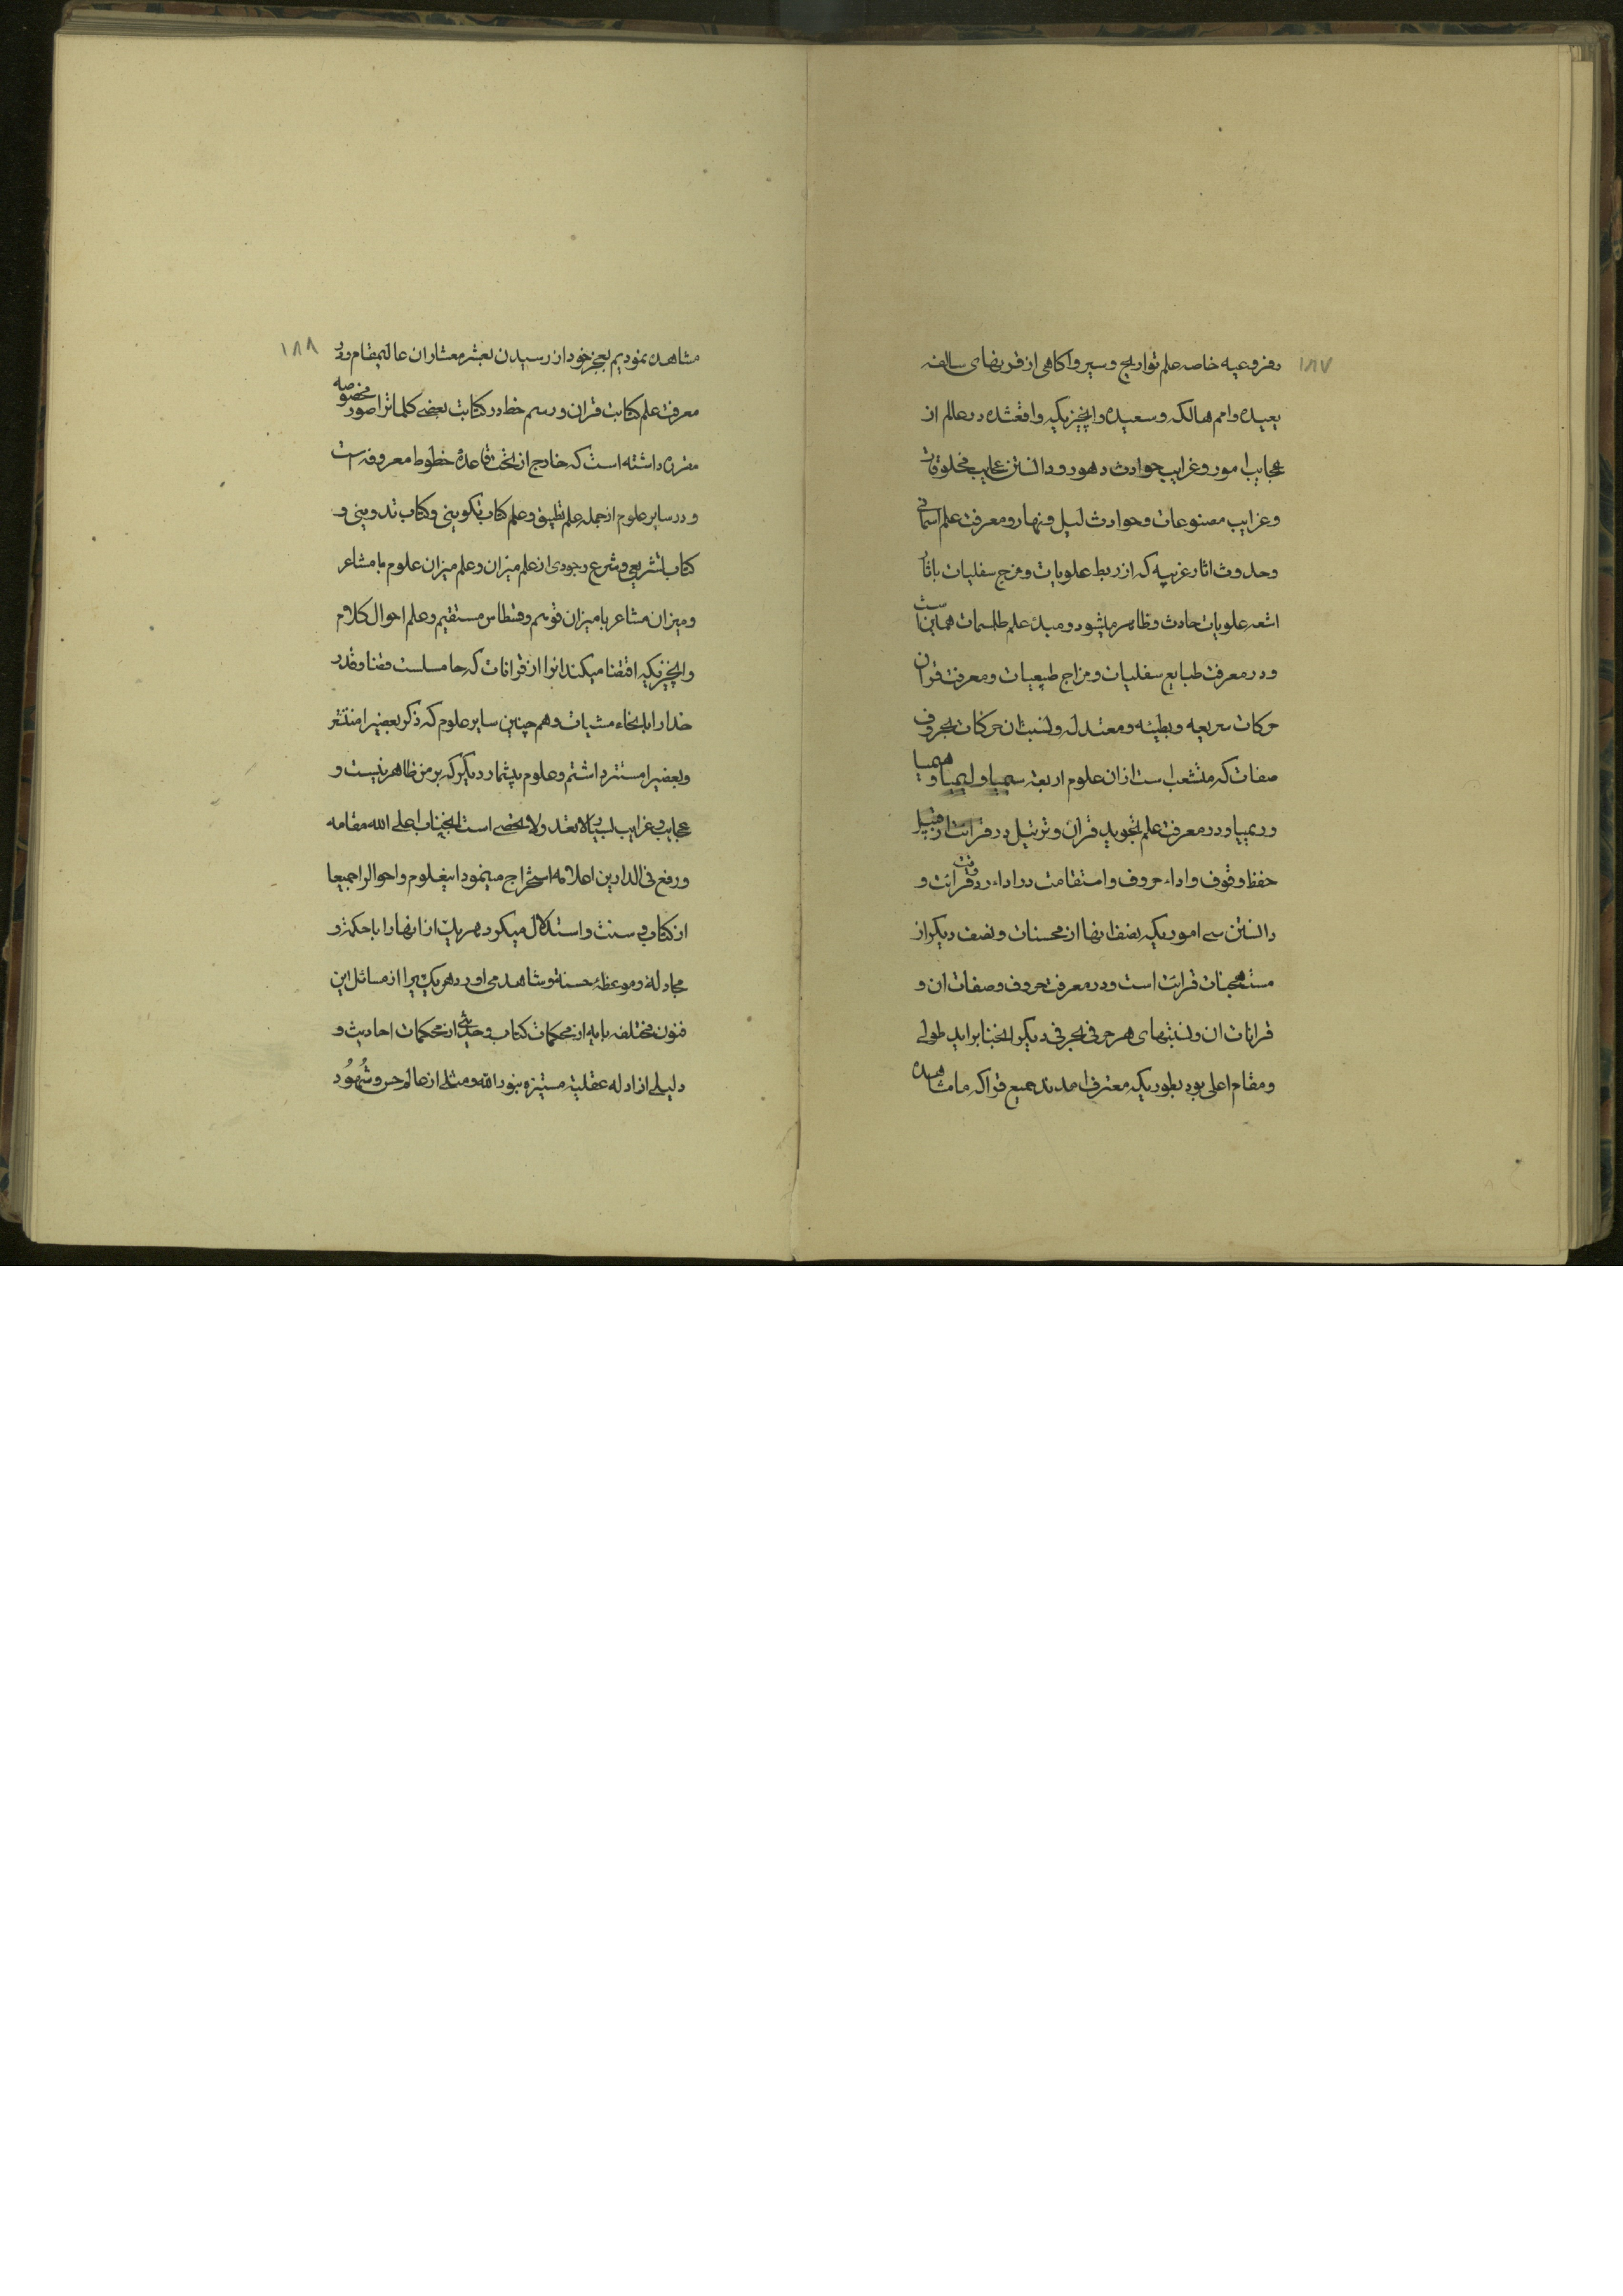 ۱۸۷
وفروعیه خاصه علم تواریخ وسیر واکاهی از قرنهای سالفه
بعیده وامم هالکه وسعیده وانچیزیکه واقعشده در عالم از
عجایب امور وغرایب حوادث دهور ودانستن عجایب مخلوقات
وغرایب مصنوعات وحوادث لیل ونهار ومعرفت علم اسمائی
وحدوث اثار غریبه که از ربط علویات ومزج سفلیات باثار
اشعه علویات حادث وظاهر میشود ومبدء علم طلسمات همین است
ودر معرفت طبایع سفلیات ومزاج طبیعیات ومعرفت قران
حرکات سریعه وبطیئه ومعتدله ونسبت ان حرکات بحروف
صفات که منشعب است از ان علوم اربعه سیمیا ولیمیا وهیمیا
وریمیا ودر معرفت علم تجوید قران وترتیل در قرائت از قبیل
حفظ وقوف واداء حروف واستقامت در اداء در وقت قرائت و
دانستن سی امور یکه نصف انها از محسنات ونصف دیکر از
مستهجنات قرائت است ودر معرفت حروف وصفات ان و
قرانات ان ونسبتهای هر حرفی بحرفی دیکر انجنابرا ید طولی
ومقام اعلی بود بطوریکه معترف امدند جمیع قرا که ما مشاهده
۱۸۸
مشاهده نمودیم بعجز خود از رسیدن بعشر معشار ان عالیمقام ودر
معرفت علم کتابت قران ورسم خط در کتابت بعضی کلماترا صور مخصوصه
مقرره داشته است که خارج از تحت قاعده خطوط معروفه است
ودر سایر علوم از جمله علم تطبیق وعلم کتاب تکوینی وکتاب تدوینی و
کتاب تشریعی وشرع وجودی از علم میزان وعلم میزان علوم با مشاعر
ومیزان مشاعر با میزان قویم وقسطاس مستقیم وعلم احوال کلام
وانچیزیکه اقتضا میکند انرا از قرانات که حامسلست قضا وقدر
خدارا بانحاء مشیات وهم چنین سایر علوم که ذکر بعضیرا منتشر
وبعضیرا مستتر داشتم وعلوم بیشمار دیکر که بر من ظاهر نیست و
عجایب وغرایب بسیار لا تعد ولا تحصی است انجناب اعلی الله مقامه
ورفع فی الدارین اعلامه استخراج مینمود اینعلوم واحوالرا جمیعا
از کتاب وسنت واستدلال میکرد هر یک از انهارا با حکمة و
مجادلة وموعظهٔ حسنة وشاهد می اورد هر یک یرا از مسائل این
فنون مختلفه بایه از محکمات کتاب وحدیثی از محکمات احادیث و
دلیلی از ادله عقلیه مستنیره بنور الله ومثلی از عالم حس وشُهُود